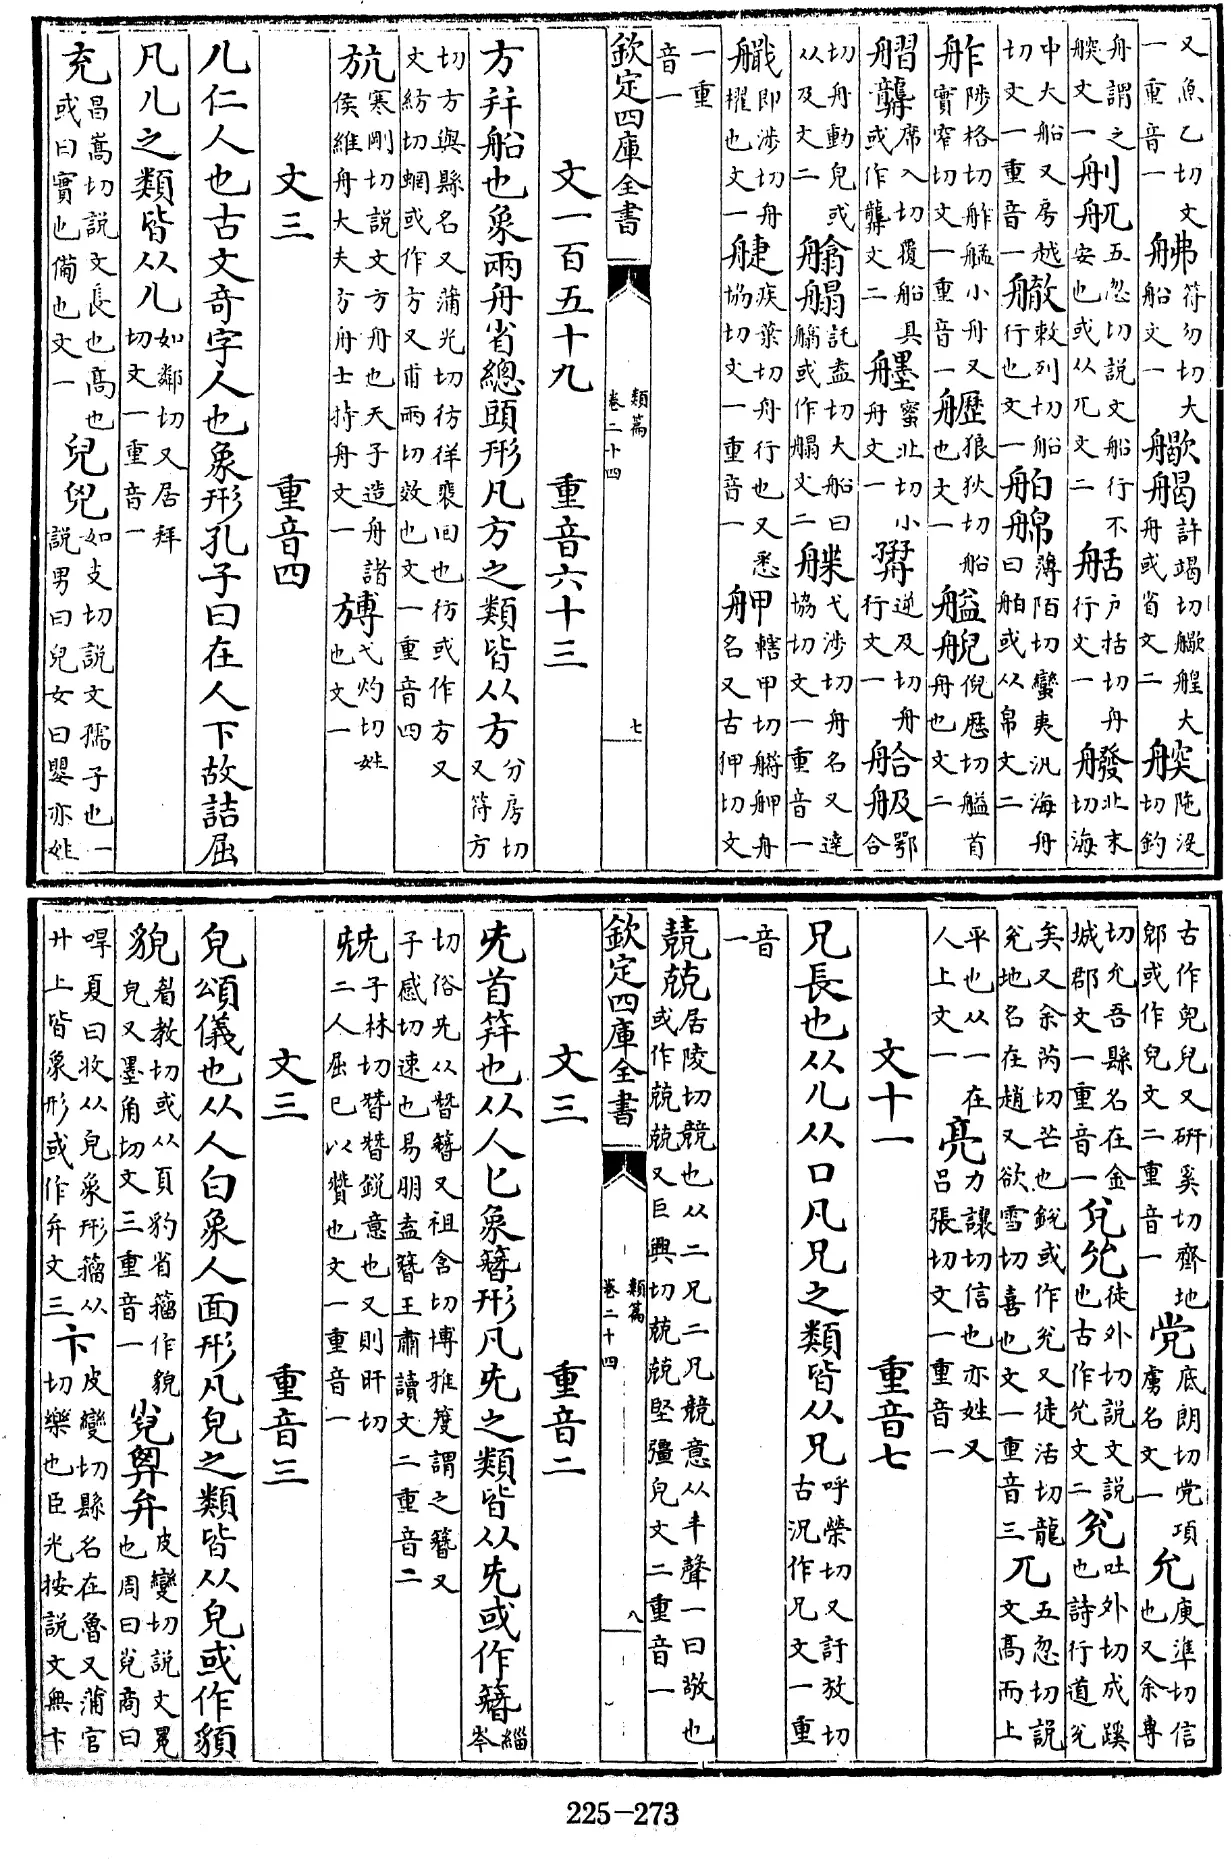 又魚乙切文一重音一 艴符勿切大船文一 𦪘𦩲許竭切𦪘艎大舟或省文二 𦩤陁没切釣
舟謂之𦩤文一 𦨖𦨉五忽切説文船行不安也或从兀文二 𦨱户括切舟行文一 𦪑北末切海
中大船又房越切文一重音一 𦪞敕列切船行也文一 舶𦩉薄陌切蠻夷汎海舟曰舶或从帛文二
舴陟格切舴艋小舟又實窄切文一重音一 𦪾狼狄切船也文一 艗艌倪歴切艗首舟也文二
𦪙龖席入切覆船具或作龖文二 𦪫蜜北切小舟文一 逆及切舟行文一 𦩍鄂合
切舟動皃或从及文二 託盍切大船曰艒或作艒文二 弋涉切舟名又達協切文一重音一
即涉切舟櫂也文一 疾葉切舟行也又悉協切文一重音一 轄甲切舟名又古狎切文
一重音一
文一百五十九 重音六十三
欽定四庫全書 類篇 卷二十四 七
方併船也象兩舟省總頭形凡方之類皆从方分房切又符方
切方與縣名又蒲光切彷徉裵回也彷或作方又文紡切蝄或作方又甫兩切效也文一重音四
㫄寒剛切説文方舟也天子造舟諸侯維舟大夫方舟士特舟文一 弋灼切姓也文一
文三 重音四
儿仁人也古文奇字人也象形孔子曰在人下故詰屈
凡儿之類皆从儿如鄰切又居拜切文一重音一
充昌嵩切説文長也高也或曰實也備也文一 兒如支切説文孺子也一説男曰兒女曰嬰亦姓
古作兒兒又研奚切齊地郳或作兒文二重音一 党底朗切党項虜名文一 允庾準切信也又余專
切允吾縣名在金城郡文一重音一 兌兊徒外切説文説也古作兊文二 兖吐外切成蹊也詩行道兖
矣又余芮切芒也鋭或作兖又徒活切龍兖地名在趙又欲雪切喜也文一重音三 兀五忽切説文高而上
平也从一在人上文一 亮力讓切信也亦姓又吕張切文一重音一
文十一 重音七
兄長也从儿从口凡兄之類皆从兄呼榮切又許放切古況作兄文一重
音一
競兢居陵切競也从二兄二兄競意从丰聲一曰敬也或作兢兢又巨興切兢兢堅彊皃文二重音一
欽定四庫全書 類篇 卷二十四 八
文三 重音二
兂首笄也从人匕象簪形凡兂之類皆从兂或作簪緇岑
切俗兂从朁簪又祖含切博雅篸謂之簪又子感切速也易朋盍簪王肅讀文二重音二
兟子林切朁朁鋭意也又則旰切二人屈巳以贊也文一重音一
文三 重音三
皃頌儀也从人白象人面形凡皃之類皆从皃或作䫉
貌眉教切或从頁豹省籀作貌皃又墨角切文三重音一 覍𢍘弁皮變切説文冕也周曰覍商曰
哻夏曰收从皃象形籀从廾上皆象形或作弁文三 卞皮變切縣名在魯又蒲官切樂也臣光按説文無卞
225-273